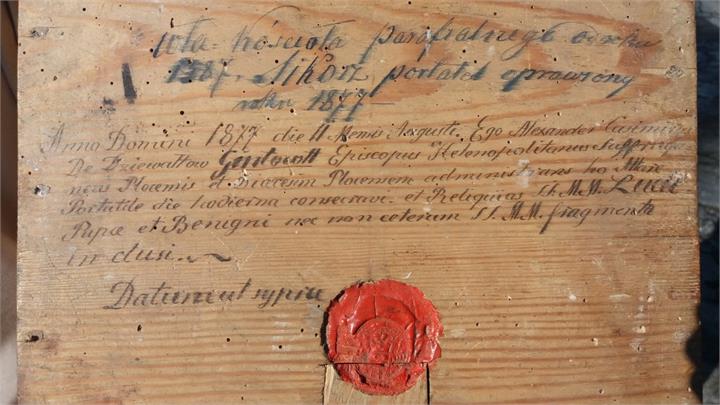 kościoła parafialnego od roku
1787. Sikorz portatel oprawiony
roku 1877
Anno Domini 1877 die 11 Mensis Augusti. Ego Alexander Casimirus
De Dziewałtow Gintowtt Episcopus Helenopolitanus Suffraga
neus Plocensis et Diœcesim Plocensem administrans ho
Portatile die hodierna consecravi. et Reliquias SS. M.M. Lucii
Papæ et Benigni nec non ceteram SS. M.M. fragmenta
inclusi.
Datum ut supra